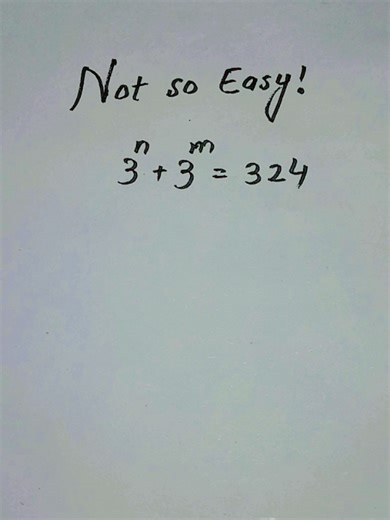 Not so Easy!
3ⁿ + 3ᵐ = 324